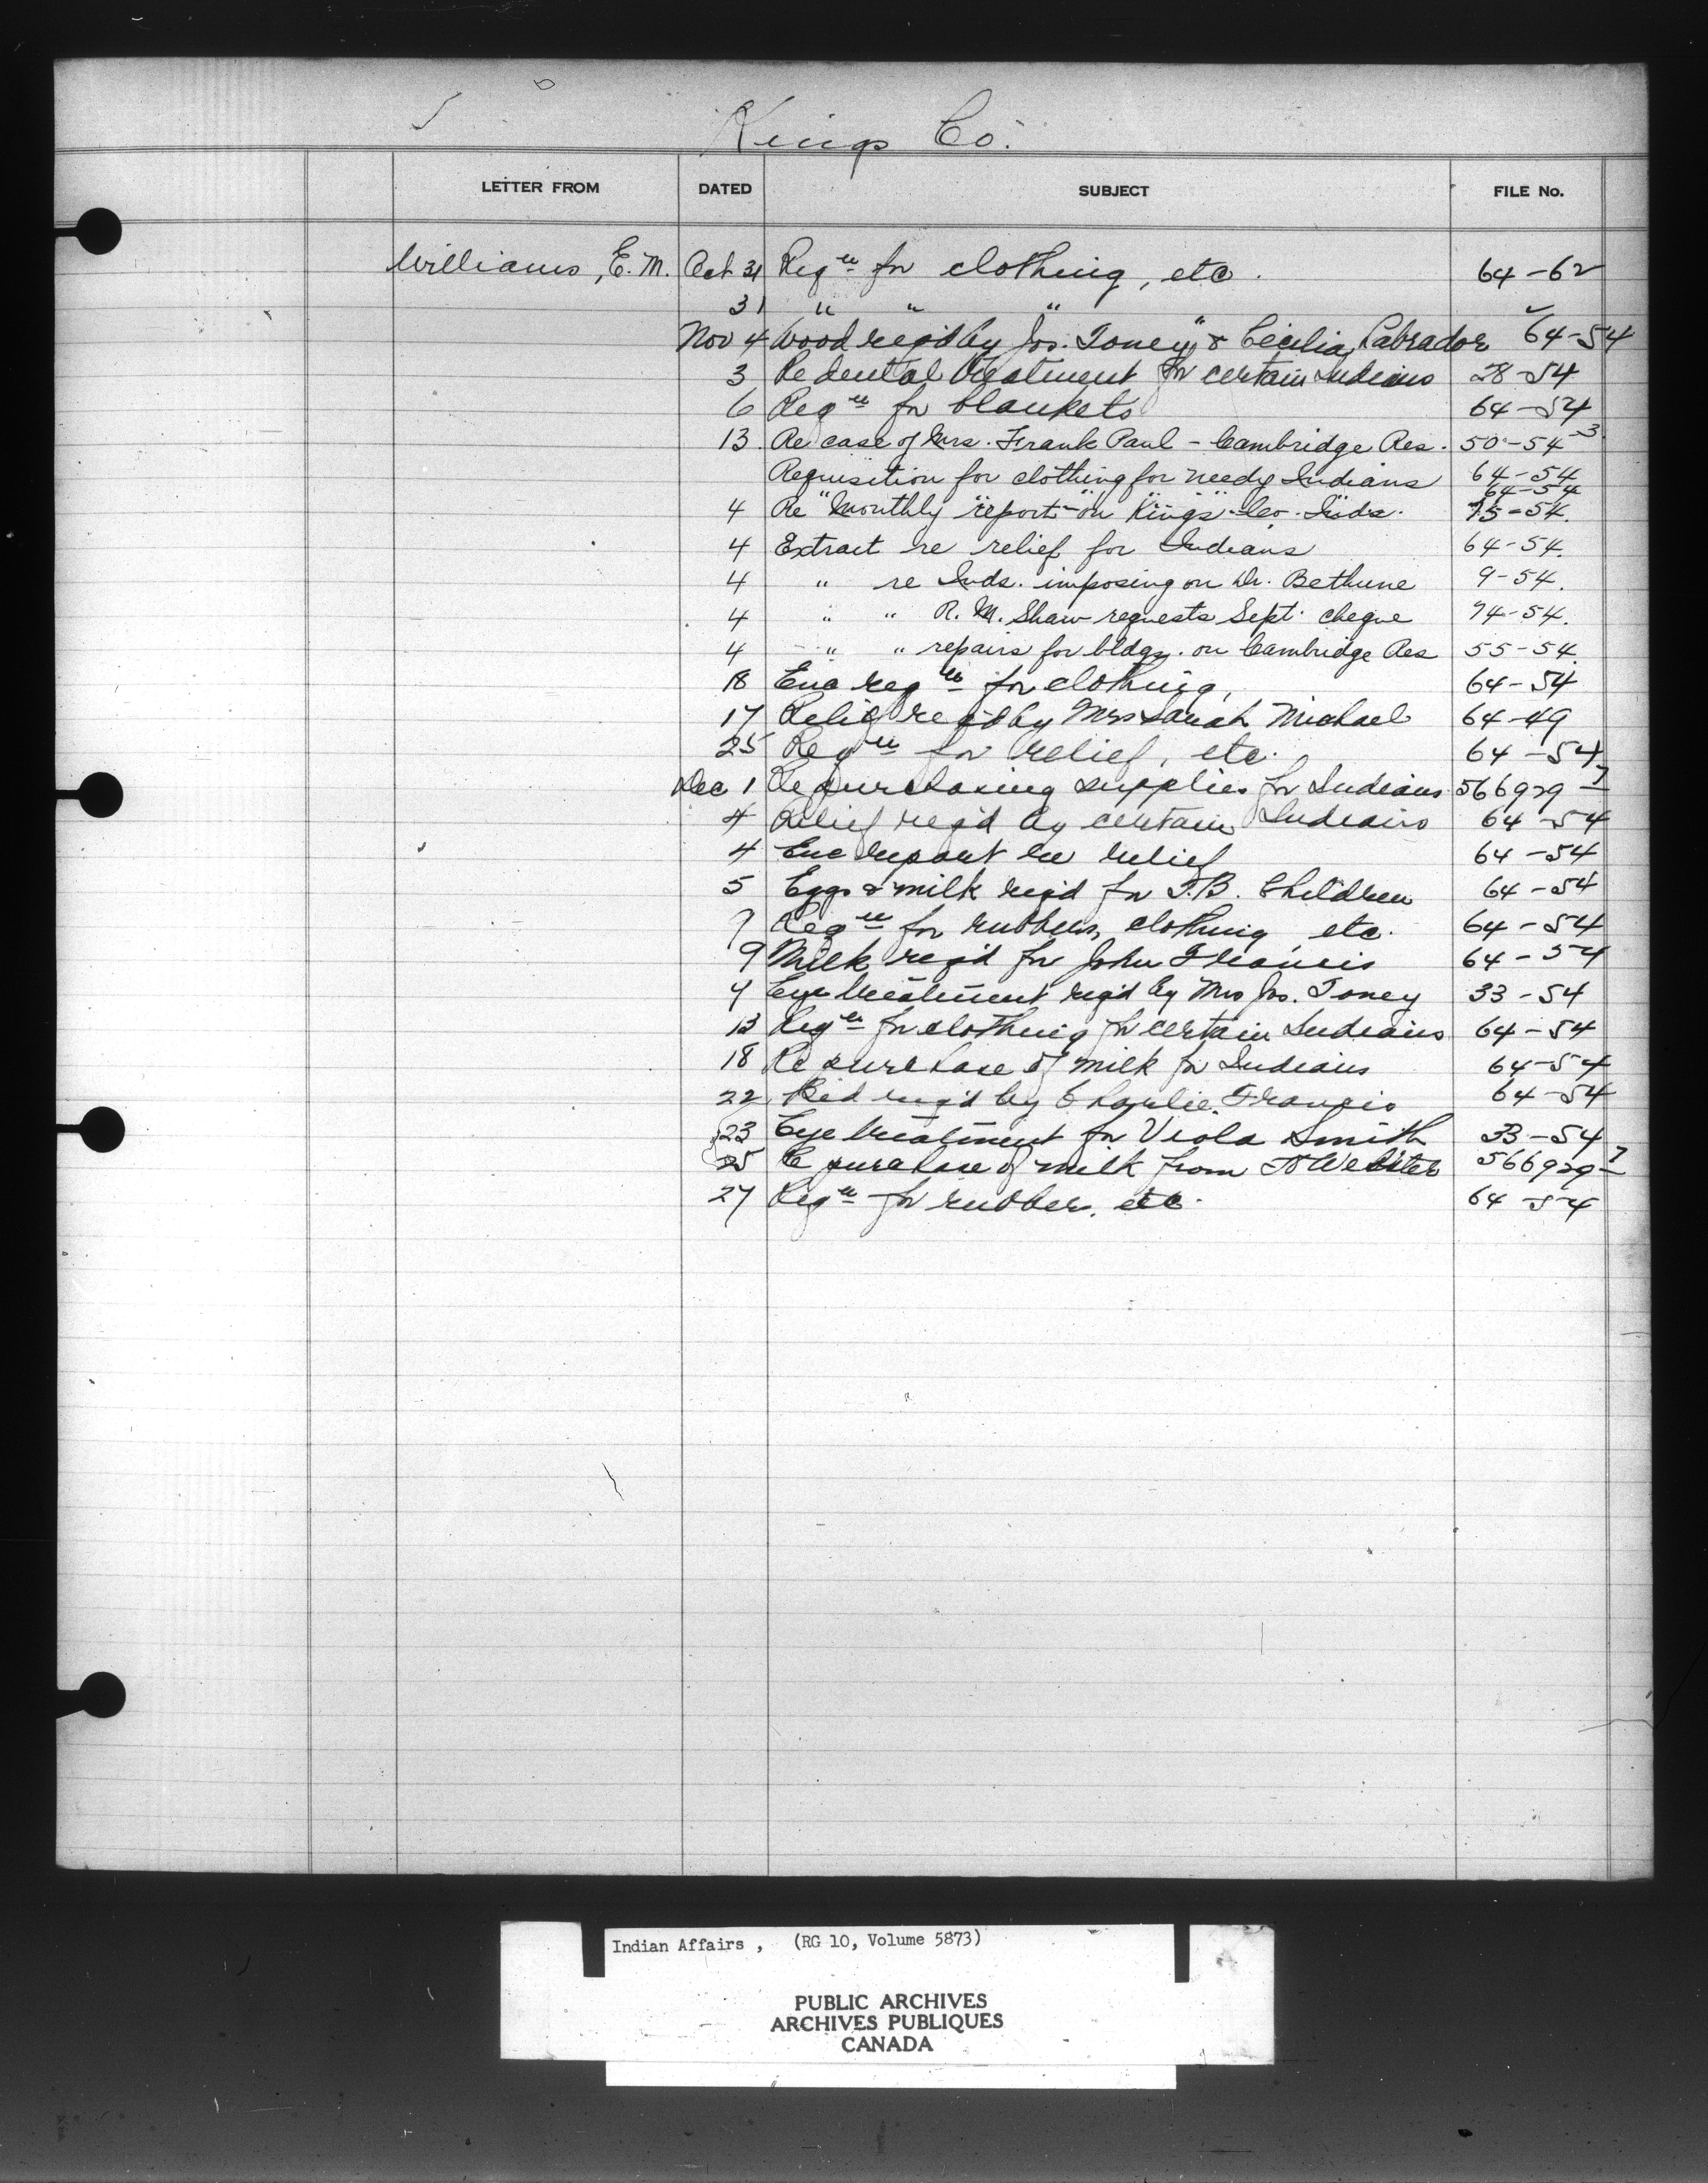 Kings Co.
LETTER FROM DATED SUBJECT FILE No.
Williams, E. M. Oct 31 Reqn for clothing, etc. 64-62
31 " " "
Nov 4 Wood req'd by Jos. Toney & Cecilia Labrador 64-54
3 Re dental treatment for certain Indians 28-54
6 Reqn for blankets 64-54
13 Re case of Mrs. Frank Paul - Cambridge Res. 50-54-3
Requisition for clothing for needy Indians 64-54
" " " " " 64-54
4 Re Monthly report on Kings Co. Inds. 75-54.
4 Extract re relief for Indians 64-54.
4 " re Inds. imposing on Dr. Bethune 9-54.
4 " " R. M. Shaw requests Sept. cheque 74-54.
4 " " repairs for bldgs. on Cambridge Res 55-54.
18 Enc reqn for clothing, 64-54
17 Relief req'd by Mrs Sarah Michael 64-49
25 Reqn for relief, etc. 64-54
Dec 1 Re purchasing supplies for Indians 566929-7
4 Relief req'd by certain Indians 64-54
4 Enc report re relief 64-54
5 Eggs & milk req'd for T.B. Children 64-54
7 Reqn for rubbers, clothing etc. 64-54
9 Milk req'd for John Francis 64-54
4 Eye treatment req'd by Mrs Jos. Toney 33-54
13 Reqn for clothing for certain Indians 64-54
18 Re purchase of milk for Indians 64-54
22 Bed req'd by Charlie Francis 64-54
23 Eye treatment for Viola Smith 33-54
25 Re purchase of milk from Webster 566929-7
27 Reqn for rubber, etc. 64-54
Indian Affairs, (RG 10, Volume 5873)
PUBLIC ARCHIVES
ARCHIVES PUBLIQUES
CANADA